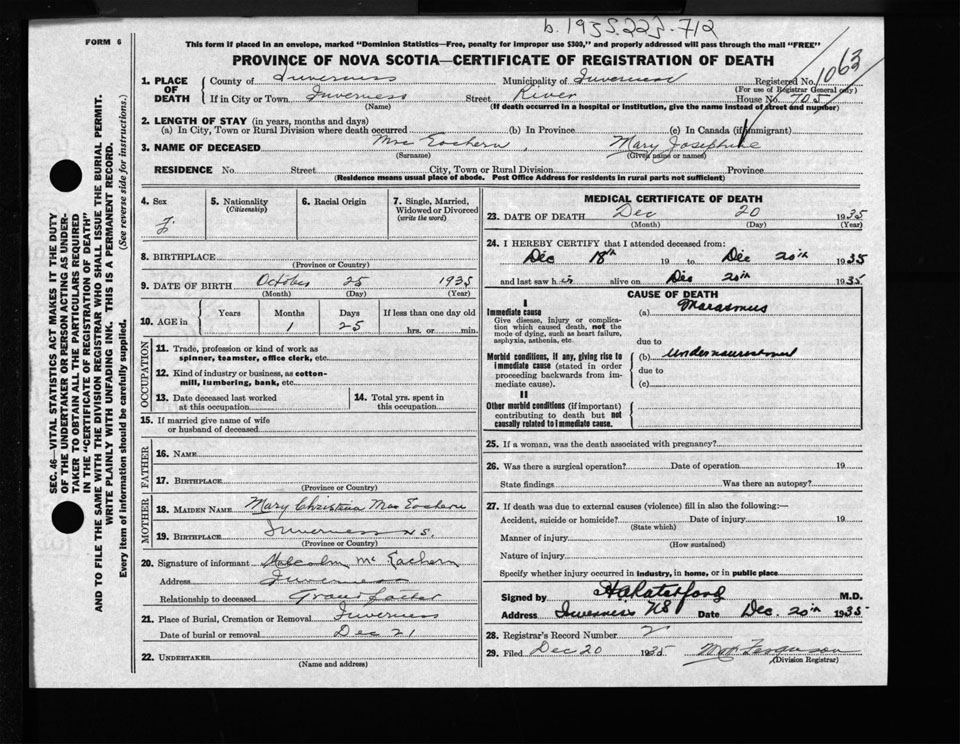 b. 1935.223.712
FORM 6
This form if placed in an envelope, marked "Dominion Statistics—Free, penalty for improper use $300," and properly addressed will pass through the mail "FREE"
PROVINCE OF NOVA SCOTIA—CERTIFICATE OF REGISTRATION OF DEATH
1063
1. PLACE OF DEATH
County of Inverness Municipality of Inverness Registered No.
(For use of Registrar General only)
If in City or Town Inverness Street River House No. 705
(Name) (If death occurred in a hospital or institution, give the name instead of street and number)
2. LENGTH OF STAY (in years, months and days)
(a) In City, Town or Rural Division where death occurred (b) In Province (c) In Canada (if immigrant)
3. NAME OF DECEASED Mac Eachern, Mary Josephine
(Surname) (Given name or names)
RESIDENCE No. Street City, Town or Rural Division Province
(Residence means usual place of abode. Post Office Address for residents in rural parts not sufficient)
SEC. 46—VITAL STATISTICS ACT MAKES IT THE DUTY
OF THE UNDERTAKER OR PERSON ACTING AS UNDER-
TAKER TO OBTAIN ALL THE PARTICULARS REQUIRED
IN THE "CERTIFICATE OF REGISTRATION OF DEATH"
AND TO FILE THE SAME WITH THE DIVISION REGISTRAR WHO SHALL ISSUE THE BURIAL PERMIT.
WRITE PLAINLY WITH UNFADING INK. THIS IS A PERMANENT RECORD.
Every item of information should be carefully supplied. (See reverse side for instructions.)
4. Sex
F
5. Nationality
(Citizenship)
6. Racial Origin
7. Single, Married,
Widowed or Divorced
(write the word)
8. BIRTHPLACE
(Province or Country)
9. DATE OF BIRTH October 25 1935
(Month) (Day) (Year)
10. AGE in
Years Months Days If less than one day old
1 25 hrs. or min.
OCCUPATION
11. Trade, profession or kind of work as
spinner, teamster, office clerk, etc.
12. Kind of industry or business, as cotton-
mill, lumbering, bank, etc.
13. Date deceased last worked
at this occupation
14. Total yrs. spent in
this occupation
15. If married give name of wife
or husband of deceased
FATHER
16. NAME
17. BIRTHPLACE
(Province or Country)
MOTHER
18. MAIDEN NAME Mary Christina Mac Eachern
19. BIRTHPLACE Inverness N.S.
(Province or Country)
20. Signature of informant Malcolm Mc Eachern
Address Inverness
Relationship to deceased Grand father
21. Place of Burial, Cremation or Removal Inverness
Date of burial or removal Dec 21
22. UNDERTAKER
(Name and address)
MEDICAL CERTIFICATE OF DEATH
23. DATE OF DEATH Dec 20 1935
(Month) (Day) (Year)
24. I HEREBY CERTIFY that I attended deceased from:
Dec 18th 19 to Dec 20th 1935
and last saw h er alive on Dec 20th 1935
CAUSE OF DEATH
I
Immediate cause
Give disease, injury or complica-
tion which caused death, not the
mode of dying, such as heart failure,
asphyxia, asthenia, etc.
(a) Marasmus
due to
Morbid conditions, if any, giving rise to
immediate cause (stated in order
proceeding backwards from im-
mediate cause).
(b) undernourishment
due to
(c)
II
Other morbid conditions (if important)
contributing to death but not
causally related to immediate cause.
25. If a woman, was the death associated with pregnancy?
26. Was there a surgical operation? Date of operation 19
State findings Was there an autopsy?
27. If death was due to external causes (violence) fill in also the following:—
Accident, suicide or homicide? Date of injury 19
(State which)
Manner of injury
(How sustained)
Nature of injury
Specify whether injury occurred in industry, in home, or in public place
Signed by HA Ratchford M.D.
Address Inverness NS Date Dec. 20th 1935
28. Registrar's Record Number 2
29. Filed Dec 20 1935 Ferguson
(Division Registrar)